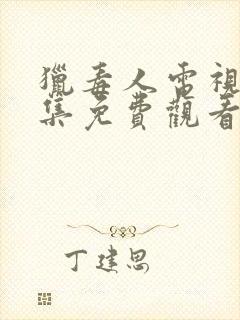 獵毒人電視
集免費觀看
丁建思